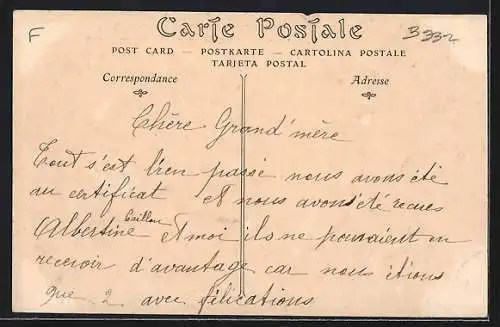 F
Carte Postale
B332
POST CARD — POSTKARTE — CARTOLINA POSTALE
TARJETA POSTAL
Correspondance
Adresse
Chère Grand'mère
Tout s'est bien passé nous avons été
au certificat et nous avons été recues
Albertine Caillou et moi ils ne pouvaient en
recevoir d'avantage car nous étions
que 2 avec félications